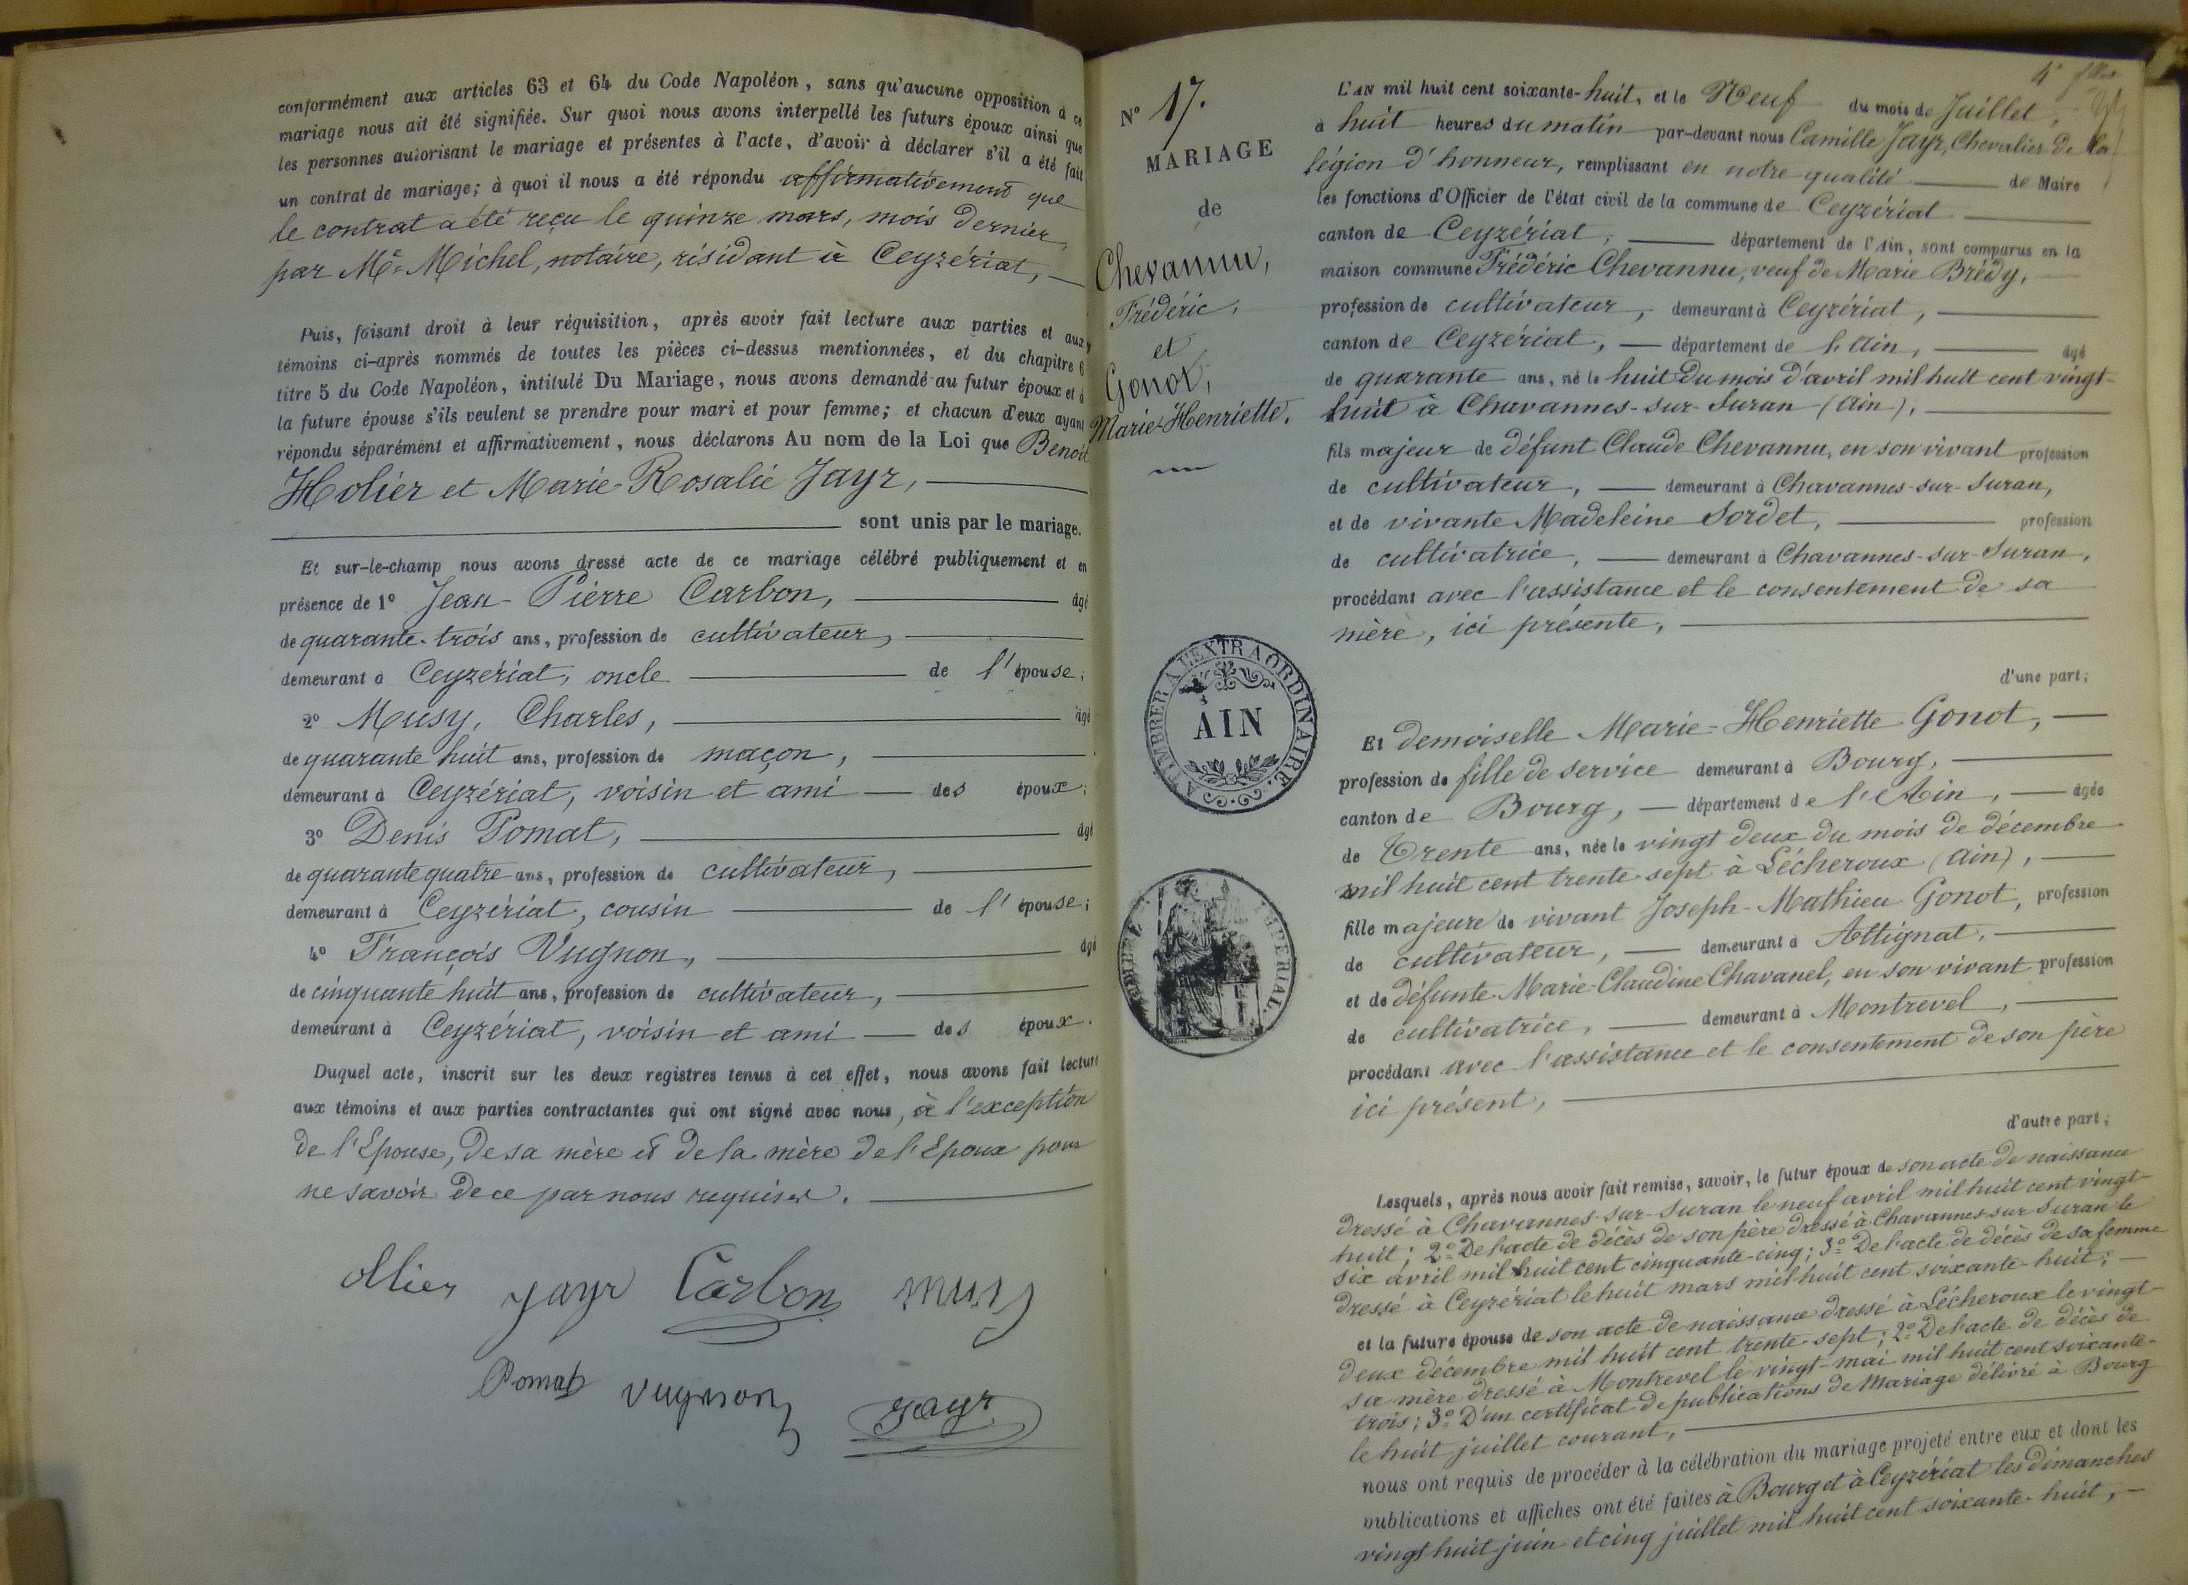 conformément aux articles 63 et 64 du Code Napoléon, sans qu'aucune opposition à ce
mariage nous ait été signifiée. Sur quoi nous avons interpellé les futurs époux ainsi que
les personnes autorisant le mariage et présentes à l'acte, d'avoir à déclarer s'il a été fait
un contrat de mariage; à quoi il nous a été répondu affirmativement que
le contrat a été reçu le quinze mars, mois dernier,
par Me Michel, notaire, résidant à Ceyzériat,
Puis, faisant droit à leur réquisition, après avoir fait lecture aux parties et aux
témoins ci-après nommés de toutes les pièces ci-dessus mentionnées, et du chapitre 6
titre 5 du Code Napoléon, intitulé Du Mariage, nous avons demandé au futur époux et à
la future épouse s'ils veulent se prendre pour mari et pour femme; et chacun d'eux ayant
répondu séparément et affirmativement, nous déclarons Au nom de la Loi que Benoit
Holier et Marie-Rosalie Jayr,
sont unis par le mariage.
Et sur-le-champ nous avons dressé acte de ce mariage célébré publiquement et en
présence de 1° Jean-Pierre Carbon, âgé
de quarante-trois ans, profession de cultivateur,
demeurant à Ceyzériat, oncle de l'épouse;
2° Musy, Charles, âgé
de quarante huit ans, profession de maçon,
demeurant à Ceyzériat, voisin et ami des époux;
3° Denis Pomat, âgé
de quarante quatre ans, profession de cultivateur,
demeurant à Ceyzériat, cousin de l'épouse;
4° François Vugnon, âgé
de cinquante huit ans, profession de cultivateur,
demeurant à Ceyzériat, voisin et ami des époux.
Duquel acte, inscrit sur les deux registres tenus à cet effet, nous avons fait lecture
aux témoins et aux parties contractantes qui ont signé avec nous, à l'exception
de l'Epouse, de sa mère et de la mère de l'Epoux pour
ne savoir de ce par nous requises.
ollier Jayr Carbon musy
Pomat vugnon Jayr
N° 17.
MARIAGE
de
Chevannu,
Frédéric,
et
Gonot,
Marie-Henriette.
A TIMBRER A L'EXTRAORDINAIRE
AIN
TIMBRE IMPERIAL
L'AN mil huit cent soixante-huit, et le Neuf du mois de Juillet,
à huit heures du matin par-devant nous Camille Jayr, Chevalier de la
légion d'honneur, remplissant en notre qualité de Maire
les fonctions d'Officier de l'état civil de la commune de Ceyzériat
canton de Ceyzériat, département de l'Ain, sont comparus en la
maison commune Frédéric Chevannu, veuf de Marie Brédy,
profession de cultivateur, demeurant à Ceyzériat,
canton de Ceyzériat, département de l'Ain, âgé
de quarante ans, né le huit du mois d'avril mil huit cent vingt-
huit à Chavannes-sur-Suran (Ain),
fils majeur de défunt Claude Chevannu, en son vivant profession
de cultivateur, demeurant à Chavannes-sur-Suran,
et de vivante Madeleine Sordet, profession
de cultivatrice, demeurant à Chavannes-sur-Suran,
procédant avec l'assistance et le consentement de sa
mère, ici présente,
d'une part;
Et demoiselle Marie-Henriette Gonot,
profession de fille de service demeurant à Bourg,
canton de Bourg, département de l'Ain, âgée
de Trente ans, née le vingt deux du mois de décembre
mil huit cent trente-sept à Lécheroux (Ain),
fille majeure de vivant Joseph-Mathieu Gonot, profession
de cultivateur, demeurant à Attignat,
et de défunte Marie-Claudine Chavanel, en son vivant profession
de cultivatrice, demeurant à Montrevel,
procédant avec l'assistance et le consentement de son père
ici présent,
d'autre part;
Lesquels, après nous avoir fait remise, savoir, le futur époux de son acte de naissance
dressé à Chavannes-sur-Suran le neuf avril mil huit cent vingt-
huit; 2° De l'acte de décès de son père dressé à Chavannes-sur-Suran le
six avril mil huit cent cinquante-cinq; 3° De l'acte de décès de sa femme
dressé à Ceyzériat le huit mars mil huit cent soixante-huit;
et la future épouse de son acte de naissance dressé à Lécheroux le vingt-
deux décembre mil huit cent trente-sept; 2° De l'acte de décès de
sa mère dressé à Montrevel le vingt-mai mil huit cent soixante-
trois; 3° D'un certificat de publications de Mariage délivré à Bourg
le huit juillet courant,
nous ont requis de procéder à la célébration du mariage projeté entre eux et dont les
publications et affiches ont été faites à Bourg et à Ceyzériat les dimanches
vingt huit juin et cinq juillet mil huit cent soixante-huit,